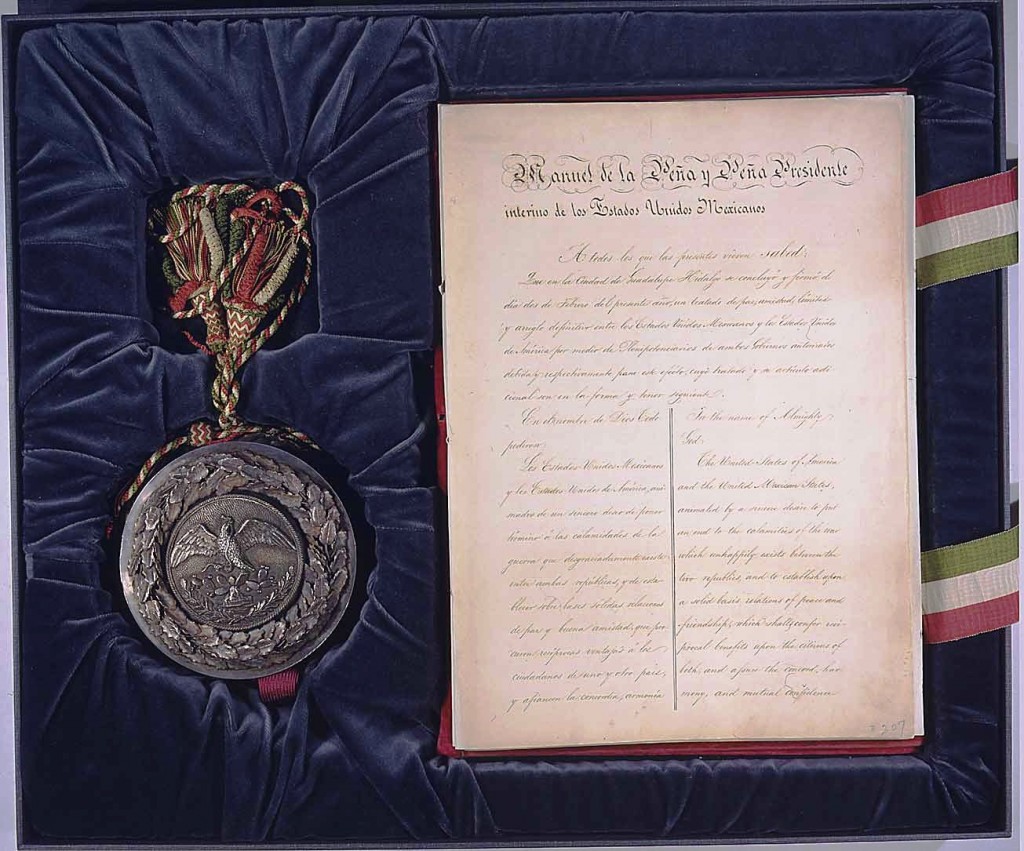 Manuel de la Peña y Peña Presidente
interino de los Estados Unidos Mexicanos
A todos los que las presentes vieren salud:
Que en la Ciudad de Guadalupe Hidalgo se concluyó y firmó el
dia dos de Febrero del presente año, un tratado de paz, amistad, límites
y arreglo definitivo entre los Estados Unidos Mexicanos y los Estados Unidos
de América por medio de Plenipotenciarios de ambos Gobiernos autorizados
debida y respectivamente para este efecto, cuyo tratado y su artículo adi-
cional son en la forma y tenor siguiente.
En el nombre de Dios Todo
poderoso:
Los Estados Unidos Mexicanos
y los Estados Unidos de América, ani-
mados de un sincero deseo de poner
término á las calamidades de la
guerra que desgraciadamente existe
entre ambas repúblicas, y de esta-
blecer sobre bases sólidas relaciones
de paz y buena amistad, que pro-
curen recíprocas ventajas á los
ciudadanos de uno y otro pais,
y afiancen la concordia, armonía
In the name of Almighty
God:
The United States of America
and the United Mexican States,
animated by a sincere desire to put
an end to the calamities of the war
which unhappily exists between the
two republics, and to establish upon
a solid basis relations of peace and
friendship, which shall confer reci-
procal benefits upon the citizens of
both, and assure the concord, har-
mony, and mutual confidence